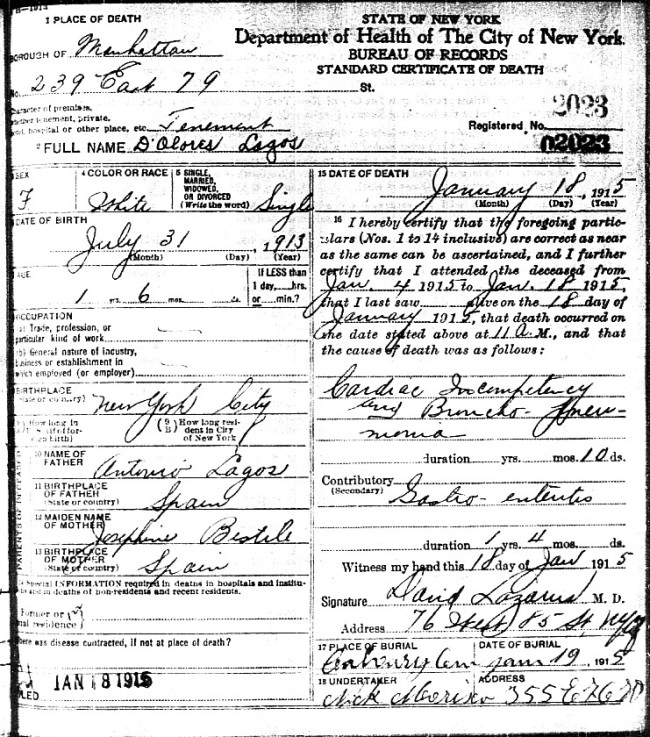 1 PLACE OF DEATH
BOROUGH OF Manhattan
No. 239 East 79 St.
Character of premises,
whether tenement, private,
hospital or other place, etc. Tenement
2 FULL NAME D'Olores Lagos
STATE OF NEW YORK
Department of Health of The City of New York
BUREAU OF RECORDS
STANDARD CERTIFICATE OF DEATH
2023
Registered No.
02023
SEX
F
4 COLOR OR RACE
White
5 SINGLE,
MARRIED,
WIDOWED,
OR DIVORCED
(Write the word) Single
DATE OF BIRTH
July 31, 1913
(Month) (Day) (Year)
AGE
1 yrs. 6 mos. ds.
If LESS than
1 day, hrs.
or min.?
OCCUPATION
(a) Trade, profession, or
particular kind of work
(b) General nature of industry,
business or establishment in
which employed (or employer)
BIRTHPLACE
(State or country) New York City
How long in
How long resi-
dent in City
of New York
10 NAME OF
FATHER
Antonio Lagos
11 BIRTHPLACE
OF FATHER
(State or country) Spain
12 MAIDEN NAME
OF MOTHER
Josephine
13 BIRTHPLACE
OF MOTHER
(State or country) Spain
Special INFORMATION required in deaths in hospitals and institu-
tions and in deaths of non-residents and recent residents.
Former or
usual residence
Where was disease contracted, if not at place of death?
FILED JAN 18 1915
15 DATE OF DEATH
January 18, 1915
(Month) (Day) (Year)
16 I hereby certify that the foregoing partic-
ulars (Nos. 1 to 14 inclusive) are correct as near
as the same can be ascertained, and I further
certify that I attended the deceased from
Jan. 4 1915 to Jan. 18 1915,
that I last saw alive on the 18 day of
January 1915, that death occurred on
the date stated above at 11 A. M., and that
the cause of death was as follows:
Cardiac Incompetency
and Broncho-Pneu-
monia
duration yrs. mos. 10 ds.
Contributory
(Secondary) Gastro-enteritis
duration 1 yrs. 4 mos. ds.
Witness my hand this 18 day of Jan 1915
Signature David Lazarus M. D.
Address 76 West 85 St. NYC
17 PLACE OF BURIAL
Calvary Cem
DATE OF BURIAL
Jan 19, 1915
18 UNDERTAKER
Nick
ADDRESS
355 E